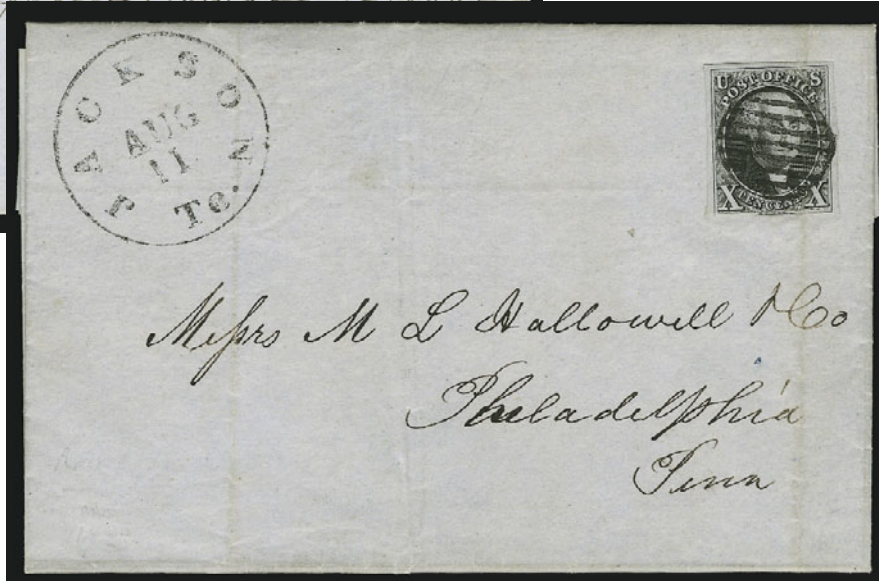 JACKSON Te.
AUG
11
U S
POST OFFICE
X TEN CENTS X
Messrs M L Hallowell & Co
Philadelphia
Penn